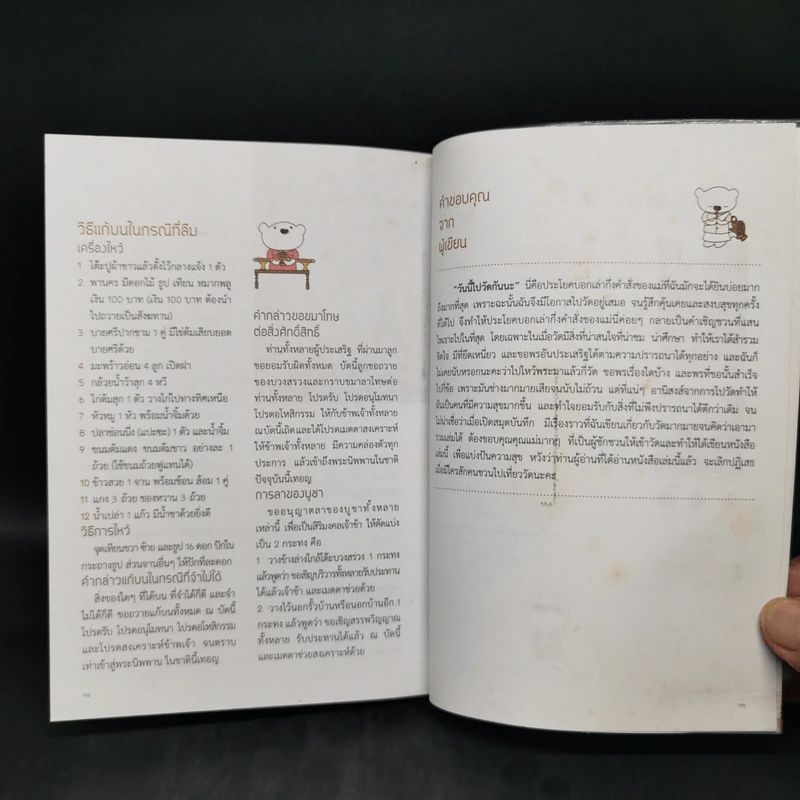 วิธีแก้บนในกรณีที่ลืม
เครื่องไหว้
1 โต๊ะปูผ้าขาวแล้วตั้งไว้กลางแจ้ง 1 ตัว
2 พานครู มีดอกไม้ ธูป เทียน หมากพลู
เงิน 100 บาท (เงิน 100 บาท ต้องนำ
ไปถวายเป็นสังฆทาน)
3 บายศรีปากชาม 1 คู่ มีไข่ต้มเสียบยอด
บายศรีด้วย
4 มะพร้าวอ่อน 4 ลูก เปิดฝา
5 กล้วยน้ำว้าสุก 4 หวี
6 ไก่ต้มสุก 1 ตัว วางไก่ไปทางทิศเหนือ
7 หัวหมู 1 หัว พร้อมน้ำจิ้มด้วย
8 ปลาช่อนนึ่ง (แป๊ะซะ) 1 ตัว และน้ำจิ้ม
9 ขนมต้มแดง ขนมต้มขาว อย่างละ 1
ถ้วย (ใช้ขนมถ้วยฟูแทนได้)
10 ข้าวสวย 1 จาน พร้อมช้อน ส้อม 1 คู่
11 แกง 3 ถ้วย ของหวาน 3 ถ้วย
12 น้ำเปล่า 1 แก้ว มีน้ำชาด้วยยิ่งดี
วิธีการไหว้
จุดเทียนขวา ซ้าย และธูป 16 ดอก ปักใน
กระถางธูป ส่วนจานอื่นๆ ให้ปักที่ละดอก
คำกล่าวแก้บนในกรณีที่จำไม่ได้
สิ่งของใดๆ ที่ได้บน ที่จำได้ก็ดี และจำ
ไม่ได้ก็ดี ขอถวายแก้บนทั้งหมด ณ บัดนี้
โปรดรับ โปรดอนุโมทนา โปรดอโหสิกรรม
และโปรดสงเคราะห์ข้าพเจ้า จนตราบ
เท่าเข้าสู่พระนิพพาน ในชาตินี้เทอญ
คำกล่าวขอขมาโทษ
ต่อสิ่งศักดิ์สิทธิ์
ท่านทั้งหลายผู้ประเสริฐ ที่ผ่านมาลูก
ขอยอมรับผิดทั้งหมด บัดนี้ลูกขอถวาย
ของบวงสรวงและกราบขมาลาโทษต่อ
ท่านทั้งหลาย โปรดรับ โปรดอนุโมทนา
โปรดอโหสิกรรม ให้กับข้าพเจ้าทั้งหลาย
ณ บัดนี้เถิดและได้โปรดเมตตาสงเคราะห์
ให้ข้าพเจ้าทั้งหลาย มีความคล่องตัวทุก
ประการ แล้วเข้าถึงพระนิพพานในชาติ
ปัจจุบันนี้เทอญ
การลาของบูชา
ขออนุญาตลาของบูชาทั้งหลาย
เหล่านี้ เพื่อเป็นสิริมงคลเจ้าข้า ให้ตัดแบ่ง
เป็น 2 กระทง คือ
1 วางข้างล่างใกล้โต๊ะบวงสรวง 1 กระทง
แล้วพูดว่า ขอเชิญบริวารทั้งหลายรับประทาน
ได้แล้วเจ้าข้า และเมตตาช่วยด้วย
2 วางไว้นอกรั้วบ้านหรือนอกบ้านอีก 1
กระทง แล้วพูดว่า ขอเชิญสรรพวิญญาณ
ทั้งหลาย รับประทานได้แล้ว ณ บัดนี้
และเมตตาช่วยสงเคราะห์ด้วย
คำขอบคุณ
จาก
ผู้เขียน
"วันนี้ไปวัดกันนะ" นี่คือประโยคบอกเล่ากึ่งคำสั่งของแม่ที่ฉันมักจะได้ยินบ่อยมาก
ถึงมากที่สุด เพราะฉะนั้นฉันจึงมีโอกาสไปวัดอยู่เสมอ จนรู้สึกคุ้นเคยและสงบสุขทุกครั้ง
ที่ได้ไป จึงทำให้ประโยคบอกเล่ากึ่งคำสั่งของแม่นี่ค่อยๆ กลายเป็นคำเชิญชวนที่แสน
ไพเราะไปในที่สุด โดยเฉพาะในเมื่อวัดมีสิ่งที่น่าสนใจที่น่าชม น่าศึกษา ทำให้เราได้สำรวม
จิตใจ มีที่ยึดเหนี่ยว และขอพรอันประเสริฐได้ตามความปรารถนาได้ทุกอย่าง และฉันก็
ไม่เคยนับหรอกนะคะว่าไปไหว้พระมาแล้วกี่วัด ขอพรเรื่องใดบ้าง และพรที่ขอนั้นสำเร็จ
ไปกี่ข้อ เพราะมันช่างมากมายเสียจนนับไม่ถ้วน แต่ที่แน่ๆ อานิสงส์จากการไปวัดทำให้
ฉันเป็นคนที่มีความสุขมากขึ้น และทำใจยอมรับกับสิ่งที่ไม่พึงปรารถนาได้ดีกว่าเดิม จน
ไม่น่าเชื่อว่าเมื่อเปิดสมุดบันทึก มีเรื่องราวที่ฉันเขียนเกี่ยวกับวัดมากมายจนคิดว่าเอามา
รวมเล่มได้ ต้องขอบคุณคุณแม่มากๆ ที่เป็นผู้ชักชวนให้เข้าวัดและทำให้ได้เขียนหนังสือ
เล่มนี้ เพื่อแบ่งปันความสุข หวังว่าท่านผู้อ่านที่ได้อ่านหนังสือเล่มนี้แล้ว จะเลิกปฏิเสธ
เมื่อมีใครสักคนชวนไปเที่ยววัดนะคะ